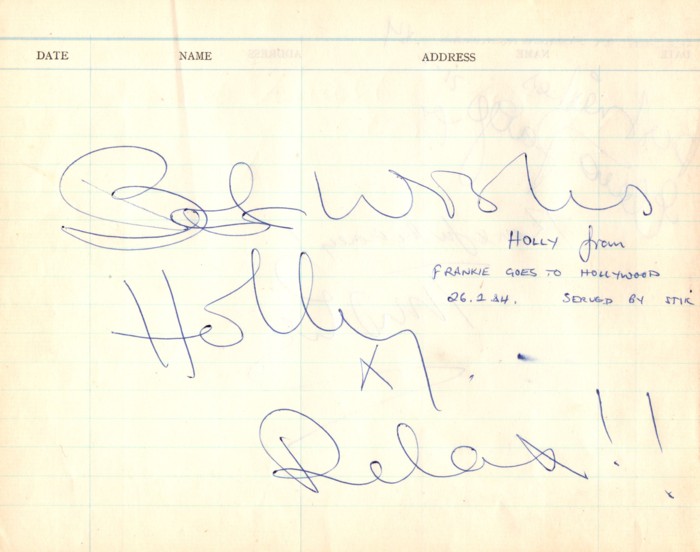 DATE NAME ADDRESS
Best Wishes
HOLLY from
FRANKIE GOES TO HOLLYWOOD
26.2.84. SERVED BY STIK
Holly
x
Relax!!